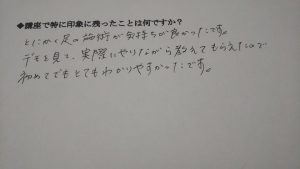 ◆講座で特に印象に残ったことは何ですか？
とにかく足の施術が気持ちが良かったです。
デモを見て、実際にやりながら教えてもらえたので
初めてでもとてもわかりやすかったです。